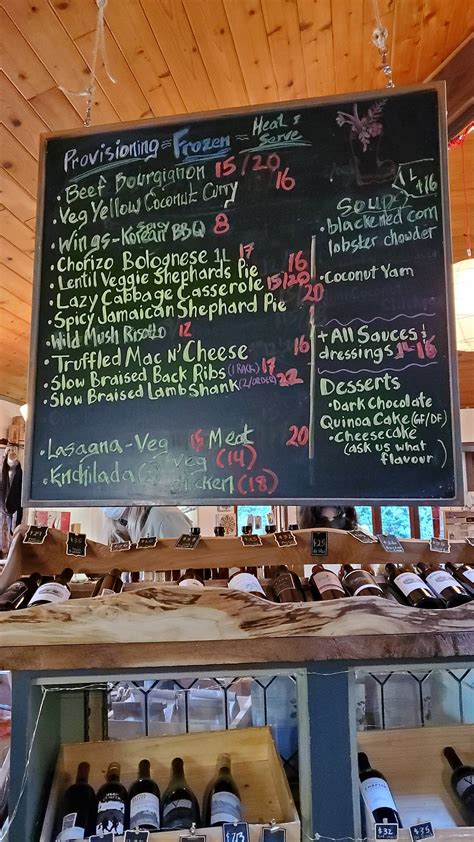 Provisioning = Frozen = Heat & Serve
• Beef Bourgignon 15/20
• Veg Yellow Coconut Curry 16
• Wings - Korean BBQ 8
• Chorizo Bolognese 1L 17
• Lentil Veggie Shephards Pie 16
• Lazy Cabbage Casserole 15/20
• Spicy Jamaican Shephard Pie 20
• Wild Mush Risoto 12
• Truffled Mac N' Cheese 16
• Slow Braised Back Ribs (1 RACK) 17
• Slow Braised Lamb Shank (2/ORDER) 22
• Lasagna - Veg 15 Meat 20
• Enchilada (2) veg (14)
chicken (18)
Soup 1L 16
• blackened corn
lobster chowder
• Coconut Yam
+ All Sauces &
dressings 16
Desserts
• Dark Chocolate
Quinoa Cake (GF/DF)
• cheesecake
(ask us what
flavour)